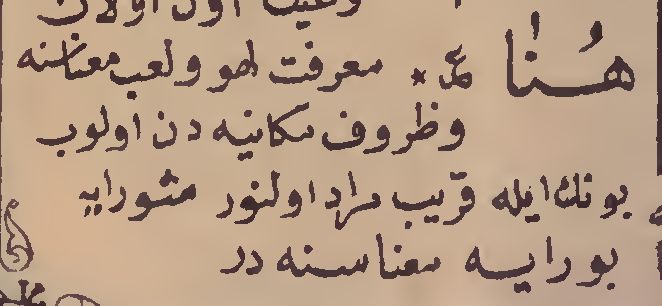 اول اولان
هُنا * معرفت لهو ولعب معناسنه
وظروف مكانيه دن اولوب
بونك ايله قريب مراد اولنور شورايه
بورايه معناسنه در